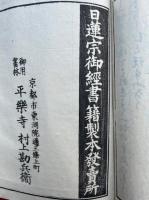 日蓮宗御經書籍製本發賣所
京都市東洞院通三條上町
御用書林
平樂寺 村上勘兵衞